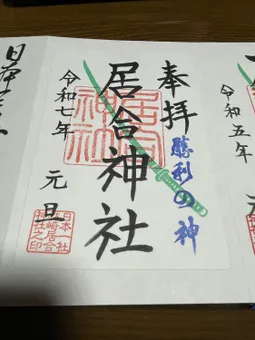 奉拝
勝利の神
居合神社
令和七年
元旦
居合
神社
日本一社
林崎居合
神社之印
令和五年
元